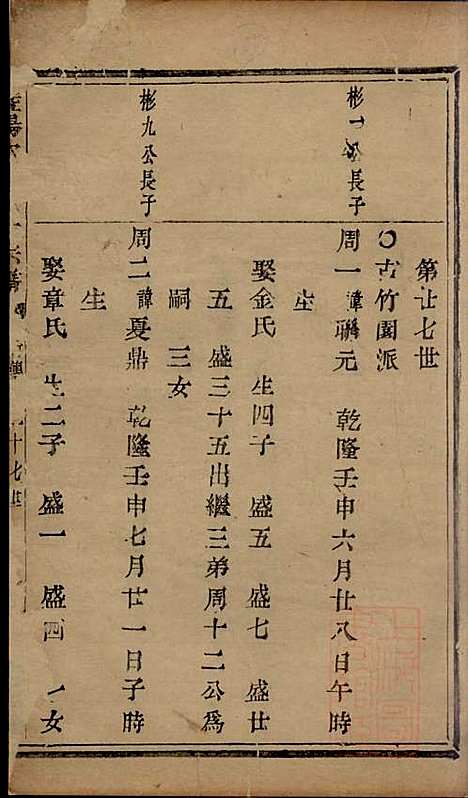 第廿七世
古竹園派
彬一公長子
周一諱聯元 乾隆壬申六月廿八日午時
生
娶金氏 生四子 盛五 盛七 盛廿
五 盛三十五出繼三弟周十二公為
嗣 三女
彬九公長子
周二諱夏鼎 乾隆壬申七月廿一日子時
生
娶章氏 生二子 盛一 盛四 一女
十七世